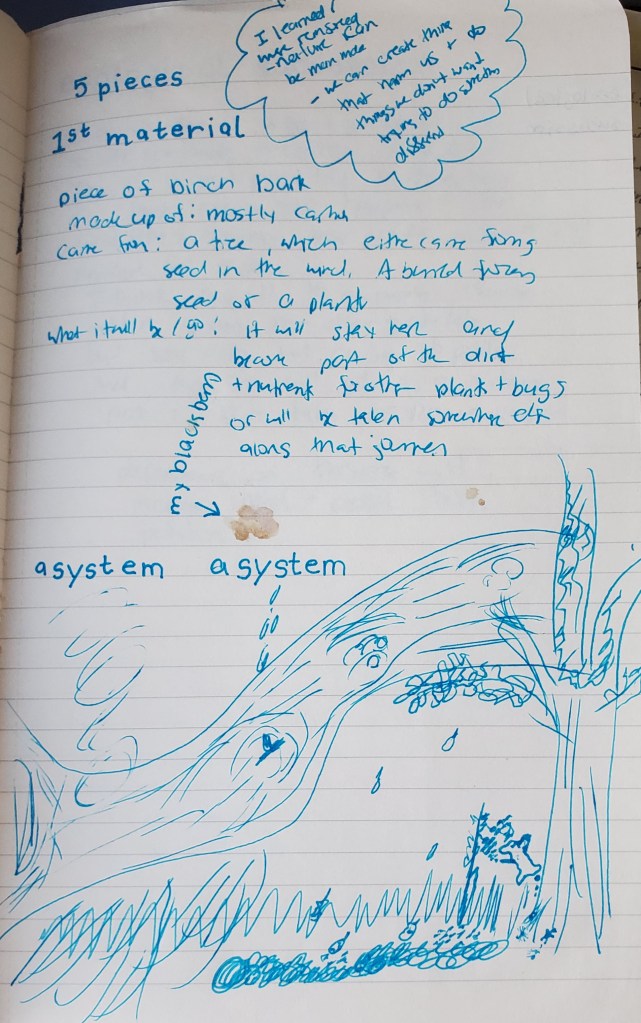 I learned /
- nature can
be man made
- we can create things
that harm us + do
things we don't want
trying to do something
different
5 pieces
1st material
piece of birch bark
made up of: mostly carbon
came from: a tree, which either came from
seed in the wind. A buried from
seed or a plant
what it will be / go: it will stay here and
become part of the dirt
+ nutrient for other plants + bugs
or will be taken somewhere else
along that journey
my black spoon
a system a system